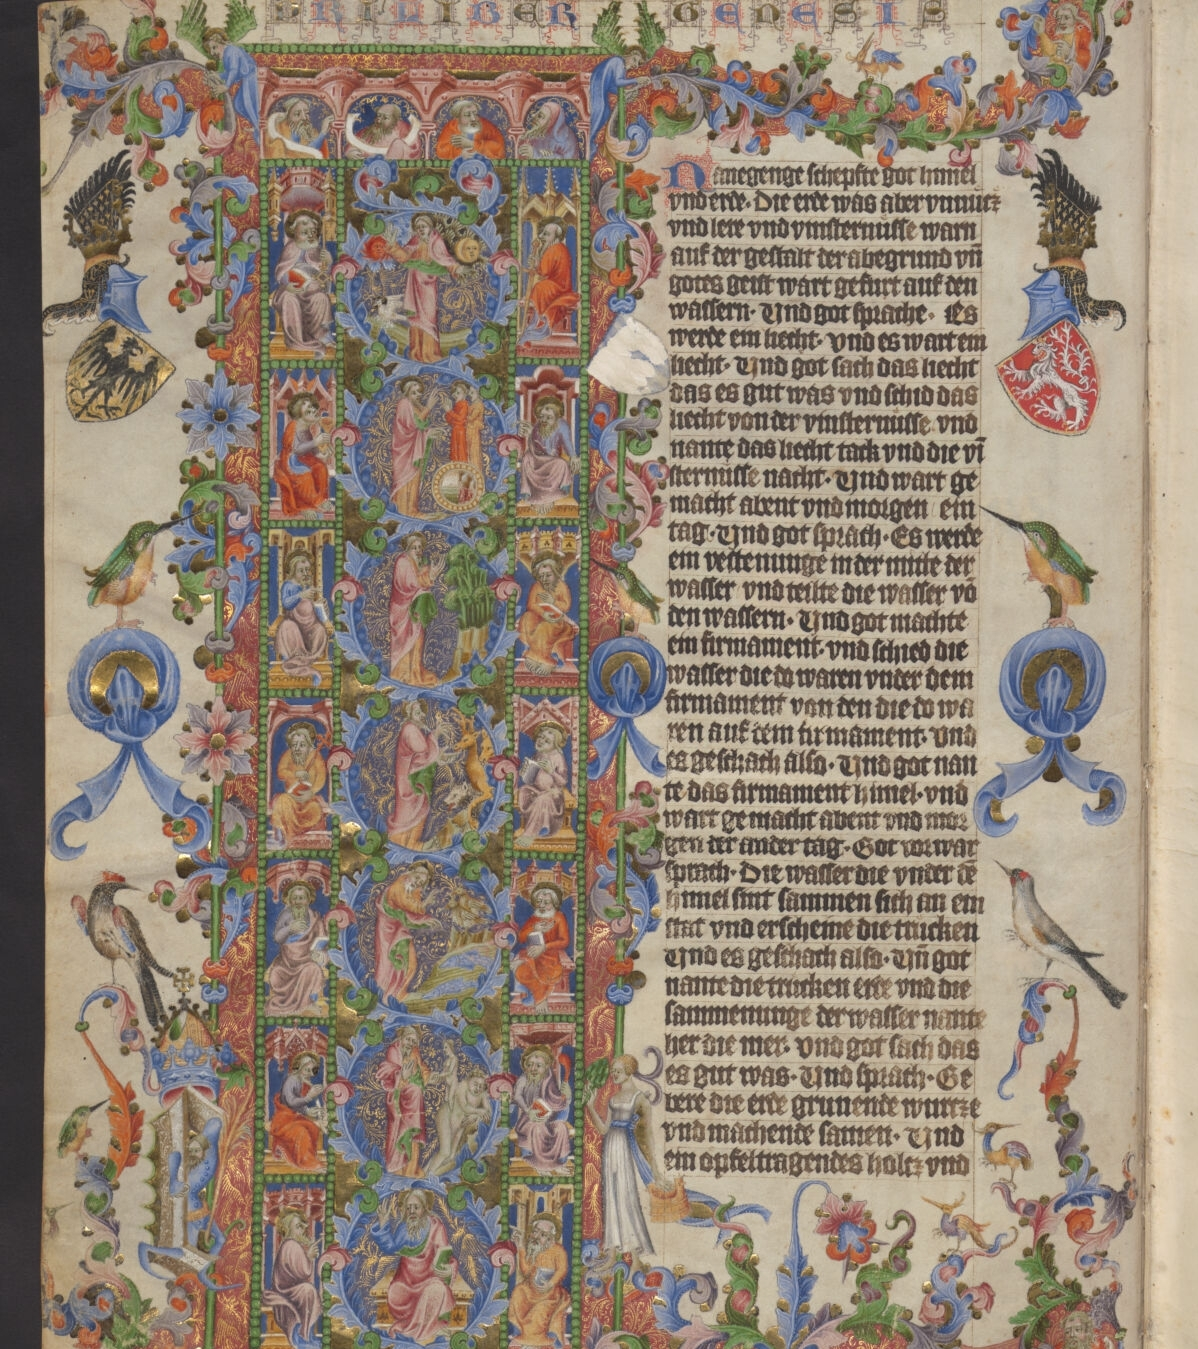 PRI LIBER GENESIS
Nanegenge schepfte got himel
vnd erde. Die erde was aber vnnutz
vnd lere vnd vinsternusse warn
auf der gestalt der abegrund vn̄
gotes geist wart gefurt auf den
wassern. Vnd got sprache. Es
werde ein liecht. vnd es wart ein
liecht. Vnd got sach das liecht
das es gut was vnd schid das
liecht von der vinsternusse. vnd
nante das liecht tack vnd die vī
sternusse nacht. Vnd wart ge
macht abent vnd morgen ein
tag. Vnd got sprach. Es werde
ein vestenunge in der mitte der
wasser vnd teilte die wasser vō
den wassern. Vnd got machte
ein firmament. vnd schied die
wasser die do waren vnter dem
firmament von den die do wa
ren auf dem firmament. vnd
es geschach also. Vnd got nan
te das firmament himel. vnd
wart gemacht abent vnd mor
gen der ander tag. Got vorwar
sprach. Die wasser die vnter dē
himel sint sammen sich an ein
stat vnd erscheine die trucken
Vnd es geschach also. Vn̄ got
nante die trucken erde vnd die
sammenunge der wasser nante
her die mer. vnd got sach das
es gut was. Vnd sprach. Ge
bere die erde grunende wurtze
vnd machende samen. Vnd
ein opfeltragendes holtz vnd